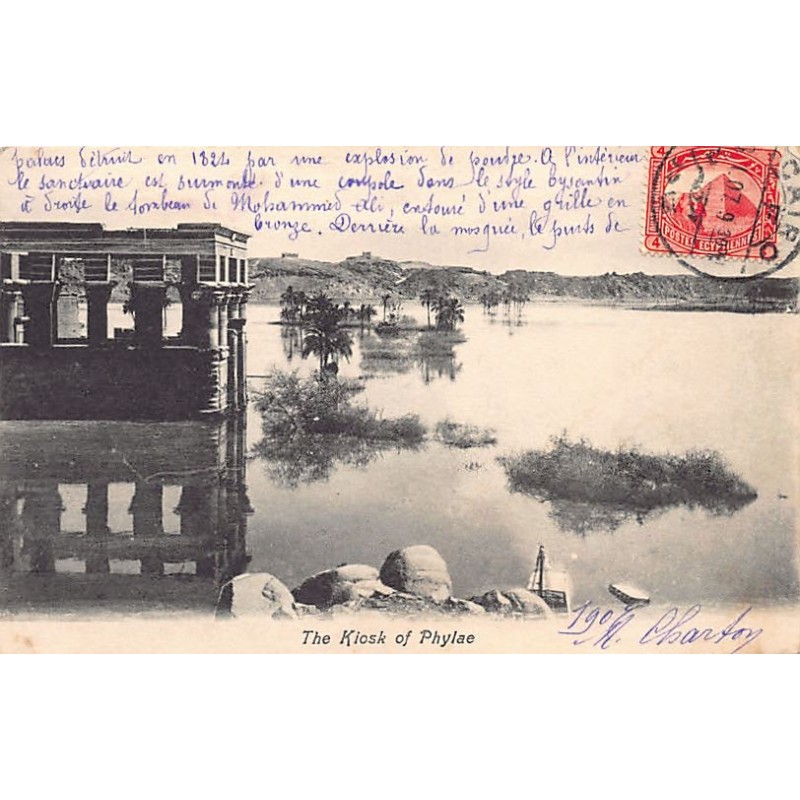 palais détruit en 1824 par une explosion de poudre. A l'intérieur
le sanctuaire est surmonté d'une coupole dans le style bysantin
à droite le tombeau de Mohammed Ali, entouré d'une grille en
bronze. Derrière la mosquée, le puits de
4 4
POSTES EGYPTIENNES
4
CAIRO
The Kiosk of Phylae
190
M. Charton